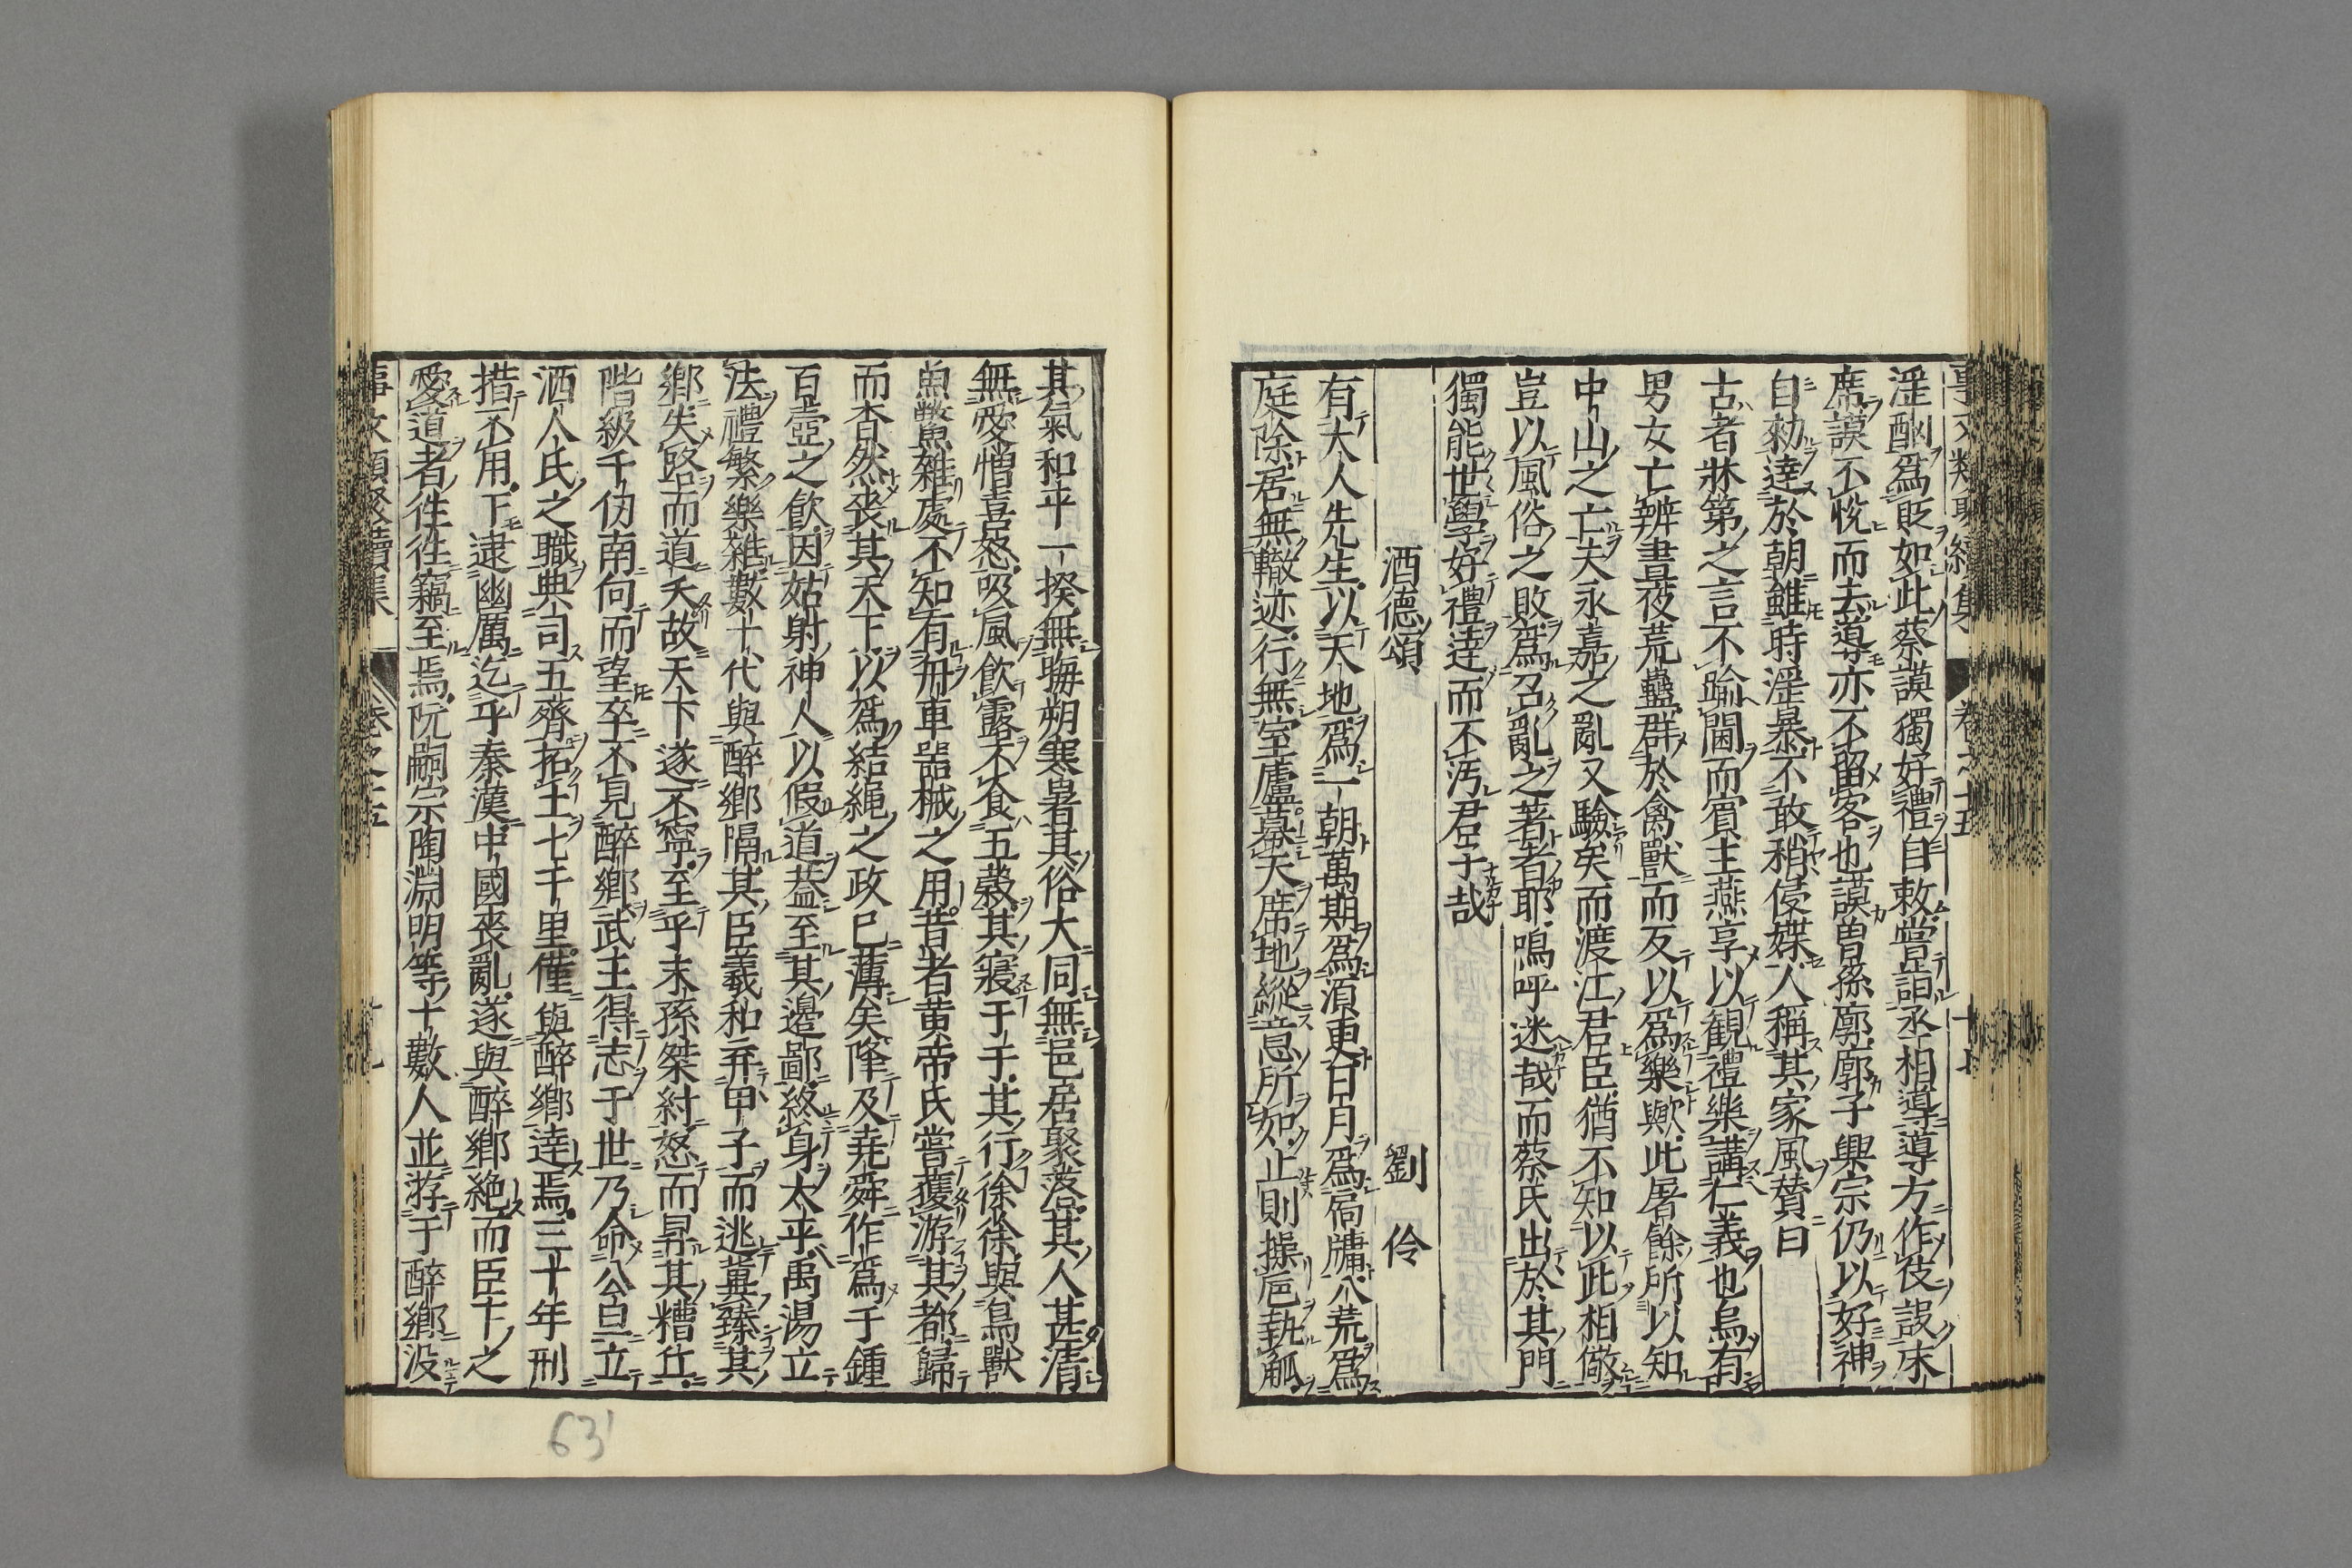 事文類聚續集 卷之十五 十七
淫酗爲貶如此蔡謨獨好禮自敕嘗詣丞相導導方作伎設床
席謨不悅而去導亦不留客也謨曾孫廓廓子興宗仍以好神
自勑達於朝雖時淫暴不敢稍侵媟人稱其家風賛曰
古者牀第之言不踰閫而賓主燕享以観禮樂講仁義也烏有
男女亡辨晝夜荒蠱群於禽獸而反以爲樂歟此屠餘所以知
中山之亡夫永嘉之亂又驗矣而渡江君臣猶不知以此相儆
豈以風俗之敗爲召亂之著者耶嗚呼迷哉而蔡氏出於其門
獨能世學好禮達而不汚君子哉
酒德頌 劉伶
有大人先生以天地爲一朝萬期爲湏更日月爲扃牖八荒爲
庭除居無轍迹行無室廬幕天席地縱意所如止則操巵執觚
其氣和平一揆無晦朔寒暑其俗大同無邑居聚落其人甚清
無愛憎喜怒吸風飮露不食五糓其寢于于其行徐徐與鳥獸
魚鱉雜處不知有舟車噐械之用昔者黄帝氏嘗獲游其都歸
而杳然喪其天下以爲結繩之政巳薄矣降及堯舜作爲千鍾
百壺之飮因姑射神人以假道葢至其邊鄙終身太平禹湯立
法禮繁樂雜數十代與醉鄕隔其臣羲和弃甲子而逃冀臻其
鄕失路而道夭故天下遂不寧至乎末孫桀紂怒而昇其糟丘
階級千仞南向而望卒不見醉鄕武王得志于世乃命公旦立
酒人氏之職典司五齊拓土七千里僅與醉鄕逹焉三十年刑
措不用下逮幽厲迄乎秦漢中國喪亂遂與醉鄕絶而臣下之
愛道者徃徃竊至焉阮嗣宗陶淵明等十數人並游于醉鄕没
事文類聚續集 卷之十五
63